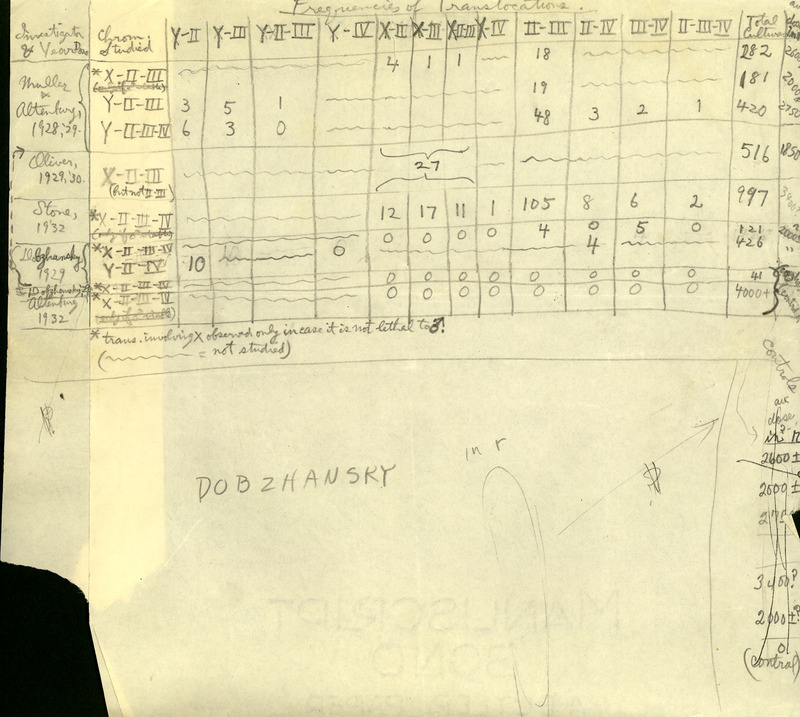 Frequencies of Translocations.
Investigator & Year Chrom. Studied Y-II Y-III Y-II-III Y-IV X-II X-III X-II-III X-IV II-III II-IV III-IV II-III-IV Total Cultures
Muller & Altenburg, 1928,'29.
*X-II-III 4 1 1 18 282 2600
19 181 2000
Y-II-III 3 5 1 48 3 2 1 420 2750
Y-II-III-IV 6 3 0
Oliver, 1929,'30. X-II-III (but not II-III) 27 516 1850
Stone, 1932 *X-II-III-IV 12 17 11 1 105 8 6 2 997 3400?
Dobzhansky 1929 *X-II-III-IV 0 0 0 0 4 0 5 0 121 2000
Y-II-IV 10 0 4 426 "
*X-II-III-IV 0 0 0 0 0 0 0 0 41
Altenburg 1932 *X-II-III-IV 0 0 0 0 0 0 0 0 4000+
* trans. involving X observed only in case it is not lethal to ♂!
( = not studied)
controls
dose
in r
2600±
in r
DOBZHANSKY
$
$
2000±
3400?
2000±?
0
(control)
MANUSCRIPT
BOND